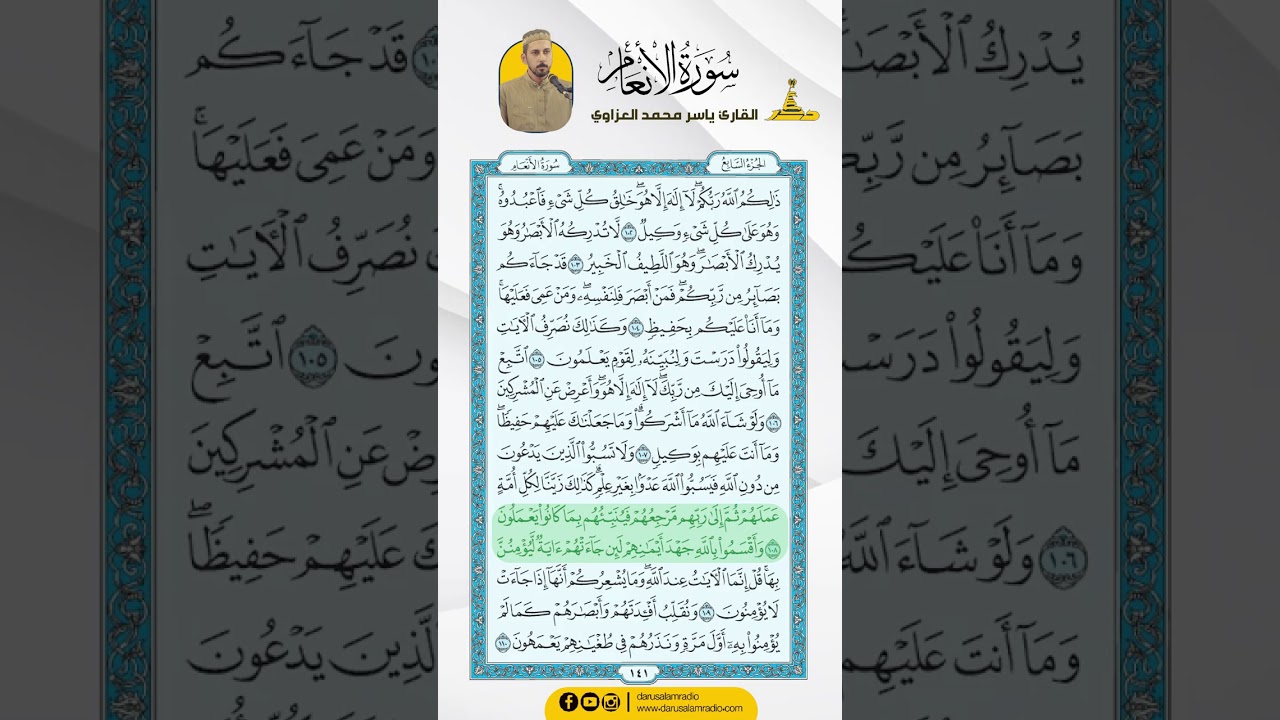 سُورَةُ الْأَنْعَامِ
القارئ ياسر محمد العزاوي
الجُزْءُ السَّابِعُ
سُورَةُ الأَنْعَامِ
ذَٰلِكُمُ ٱللَّهُ رَبُّكُمْ ۖ لَآ إِلَٰهَ إِلَّا هُوَ ۖ خَٰلِقُ كُلِّ شَىْءٍ فَٱعْبُدُوهُ ۚ
وَهُوَ عَلَىٰ كُلِّ شَىْءٍ وَكِيلٌ ١٠٢ لَّا تُدْرِكُهُ ٱلْأَبْصَٰرُ وَهُوَ
يُدْرِكُ ٱلْأَبْصَٰرَ ۖ وَهُوَ ٱللَّطِيفُ ٱلْخَبِيرُ ١٠٣ قَدْ جَآءَكُم
بَصَآئِرُ مِن رَّبِّكُمْ ۖ فَمَنْ أَبْصَرَ فَلِنَفْسِهِۦ ۖ وَمَنْ عَمِىَ فَعَلَيْهَا ۚ
وَمَآ أَنَا۠ عَلَيْكُم بِحَفِيظٍ ١٠٤ وَكَذَٰلِكَ نُصَرِّفُ ٱلْءَايَٰتِ
وَلِيَقُولُوا۟ دَرَسْتَ وَلِنُبَيِّنَهُۥ لِقَوْمٍ يَعْلَمُونَ ١٠٥ ٱتَّبِعْ
مَآ أُوحِىَ إِلَيْكَ مِن رَّبِّكَ ۖ لَآ إِلَٰهَ إِلَّا هُوَ ۖ وَأَعْرِضْ عَنِ ٱلْمُشْرِكِينَ
١٠٦ وَلَوْ شَآءَ ٱللَّهُ مَآ أَشْرَكُوا۟ ۗ وَمَا جَعَلْنَٰكَ عَلَيْهِمْ حَفِيظًا ۖ
وَمَآ أَنتَ عَلَيْهِم بِوَكِيلٍ ١٠٧ وَلَا تَسُبُّوا۟ ٱلَّذِينَ يَدْعُونَ
مِن دُونِ ٱللَّهِ فَيَسُبُّوا۟ ٱللَّهَ عَدْوًۢا بِغَيْرِ عِلْمٍ ۗ كَذَٰلِكَ زَيَّنَّا لِكُلِّ أُمَّةٍ
عَمَلَهُمْ ثُمَّ إِلَىٰ رَبِّهِم مَّرْجِعُهُمْ فَيُنَبِّئُهُم بِمَا كَانُوا۟ يَعْمَلُونَ
١٠٨ وَأَقْسَمُوا۟ بِٱللَّهِ جَهْدَ أَيْمَٰنِهِمْ لَئِن جَآءَتْهُمْ ءَايَةٌ لَّيُؤْمِنُنَّ
بِهَا ۚ قُلْ إِنَّمَا ٱلْءَايَٰتُ عِندَ ٱللَّهِ ۖ وَمَا يُشْعِرُكُمْ أَنَّهَآ إِذَا جَآءَتْ
لَا يُؤْمِنُونَ ١٠٩ وَنُقَلِّبُ أَفْـِٔدَتَهُمْ وَأَبْصَٰرَهُمْ كَمَا لَمْ
يُؤْمِنُوا۟ بِهِۦٓ أَوَّلَ مَرَّةٍ وَنَذَرُهُمْ فِى طُغْيَٰنِهِمْ يَعْمَهُونَ ١١٠
١٤١
darusalamradio
www.darusalamradio.com